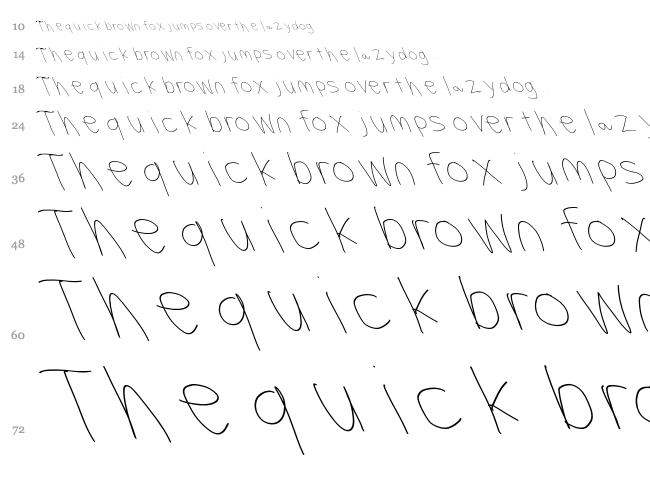 10 The quick brown fox jumps over the lazy dog
14 The quick brown fox jumps over the lazy dog
18 The quick brown fox jumps over the lazy dog
24 The quick brown fox jumps over the lazy
36 The quick brown fox jumps
48 The quick brown fox
60 The quick brown
72 The quick bro